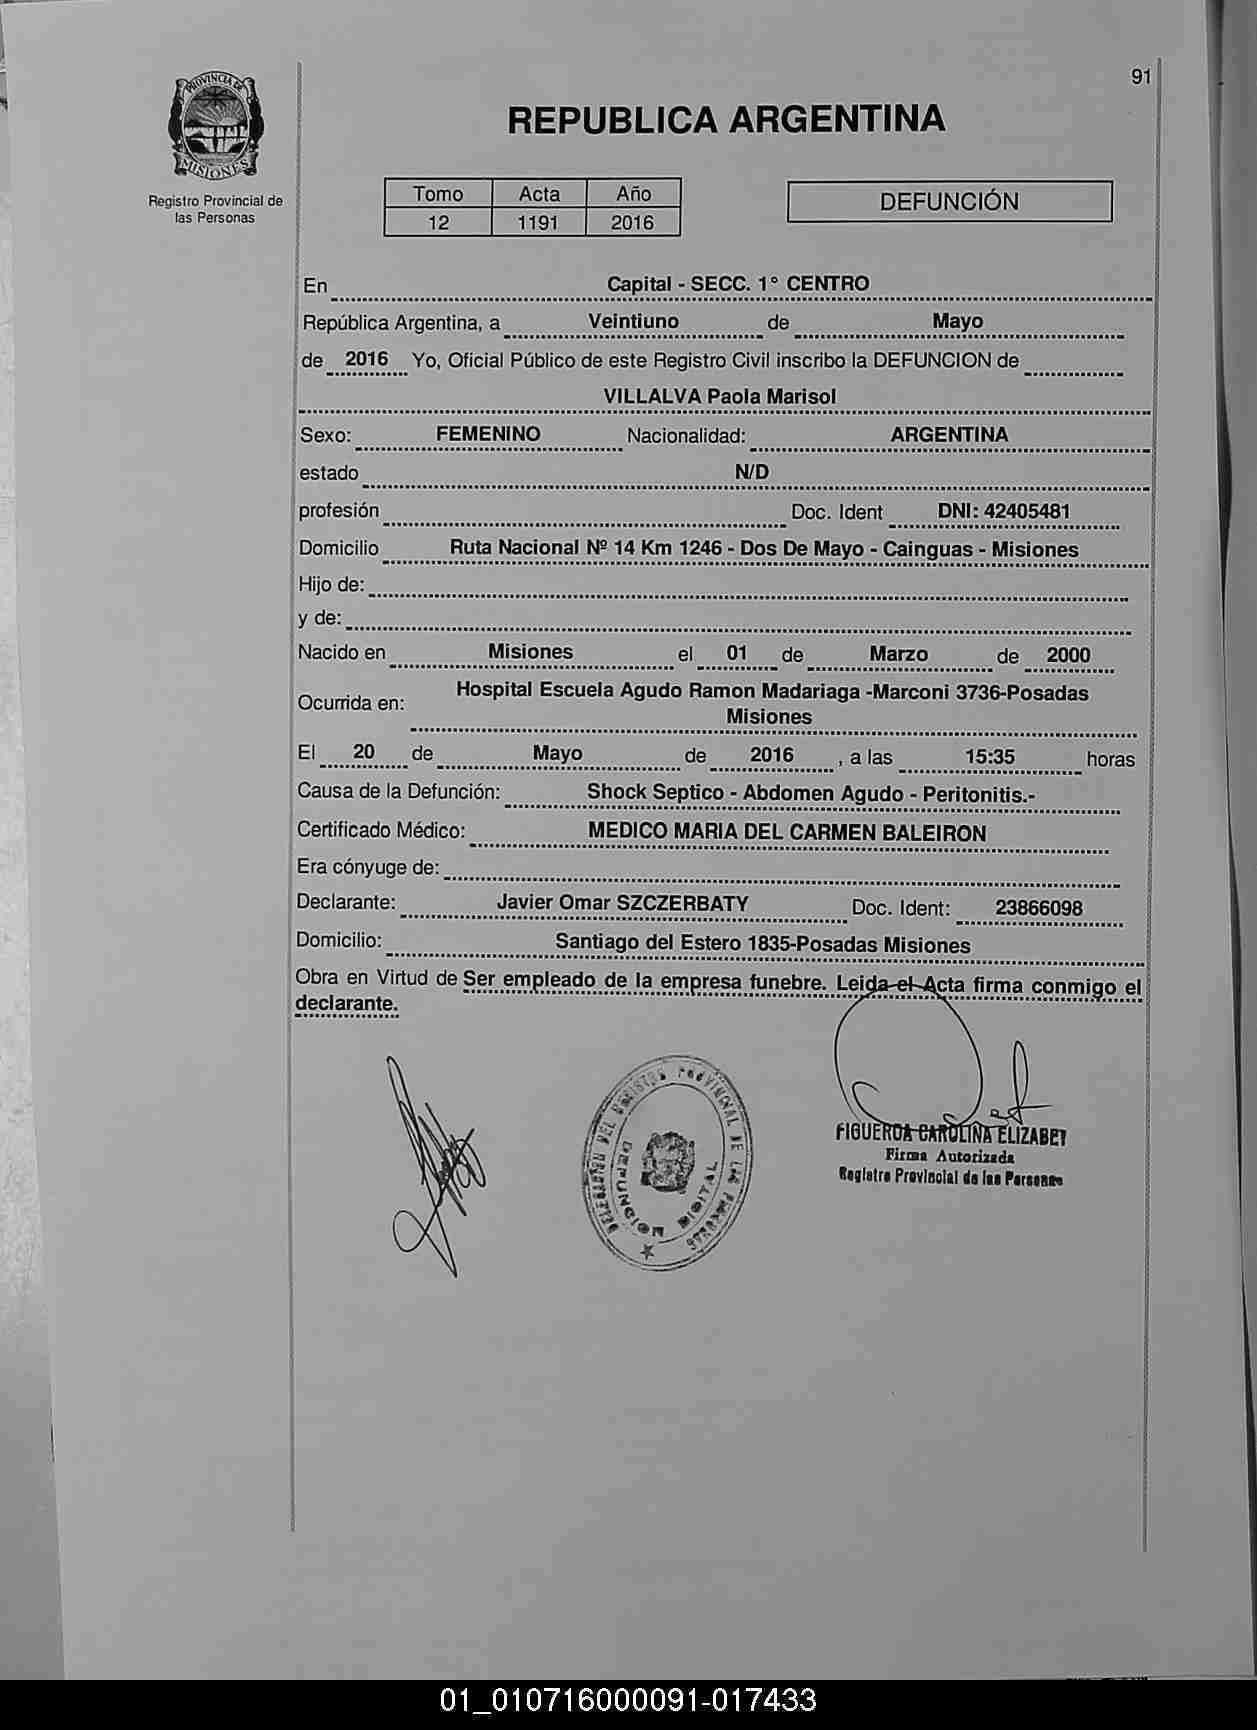 91
PROVINCIA DE
MISIONES
Registro Provincial de
las Personas
REPUBLICA ARGENTINA
Tomo Acta Año
12 1191 2016
DEFUNCIÓN
En Capital - SECC. 1° CENTRO
República Argentina, a Veintiuno de Mayo
de 2016 Yo, Oficial Público de este Registro Civil inscribo la DEFUNCION de
VILLALVA Paola Marisol
Sexo: FEMENINO Nacionalidad: ARGENTINA
estado N/D
profesión Doc. Ident DNI: 42405481
Domicilio Ruta Nacional Nº 14 Km 1246 - Dos De Mayo - Cainguas - Misiones
Hijo de:
y de:
Nacido en Misiones el 01 de Marzo de 2000
Ocurrida en: Hospital Escuela Agudo Ramon Madariaga -Marconi 3736-Posadas
Misiones
El 20 de Mayo de 2016 , a las 15:35 horas
Causa de la Defunción: Shock Septico - Abdomen Agudo - Peritonitis.-
Certificado Médico: MEDICO MARIA DEL CARMEN BALEIRON
Era cónyuge de:
Declarante: Javier Omar SZCZERBATY Doc. Ident: 23866098
Domicilio: Santiago del Estero 1835-Posadas Misiones
Obra en Virtud de Ser empleado de la empresa funebre. Leida el Acta firma conmigo el
declarante.
DEL REGISTRO PROVINCIAL DE LAS PERSONAS
DEFUNCION DIGITAL
FIGUEROA CAROLINA ELIZABET
Firma Autorizada
Registro Provincial de las Personas
01_010716000091-017433